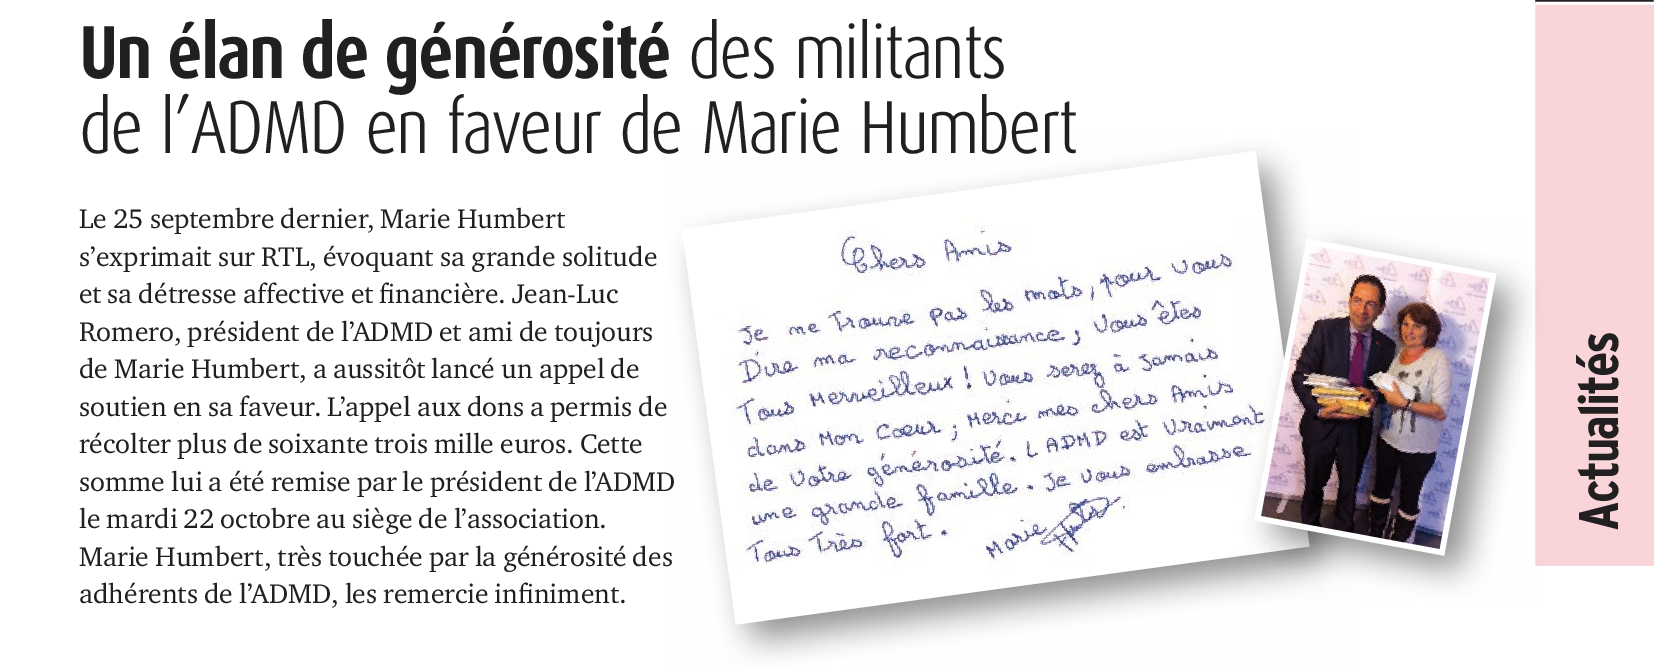 Un élan de générosité des militants
de l’ADMD en faveur de Marie Humbert
Le 25 septembre dernier, Marie Humbert
s’exprimait sur RTL, évoquant sa grande solitude
et sa détresse affective et financière. Jean-Luc
Romero, président de l’ADMD et ami de toujours
de Marie Humbert, a aussitôt lancé un appel de
soutien en sa faveur. L’appel aux dons a permis de
récolter plus de soixante trois mille euros. Cette
somme lui a été remise par le président de l’ADMD
le mardi 22 octobre au siège de l’association.
Marie Humbert, très touchée par la générosité des
adhérents de l’ADMD, les remercie infiniment.
Chers Amis
Je ne Trouve pas les mots, pour vous
Dire ma reconnaissance, Vous êtes
Tous Merveilleux ! Vous serez à Jamais
dans Mon Coeur ; Merci mes chers Amis
de Votre générosité. L ADMD est Vraiment
une grande famille. Je Vous embrasse
Tous Très fort.
Marie
Actualités